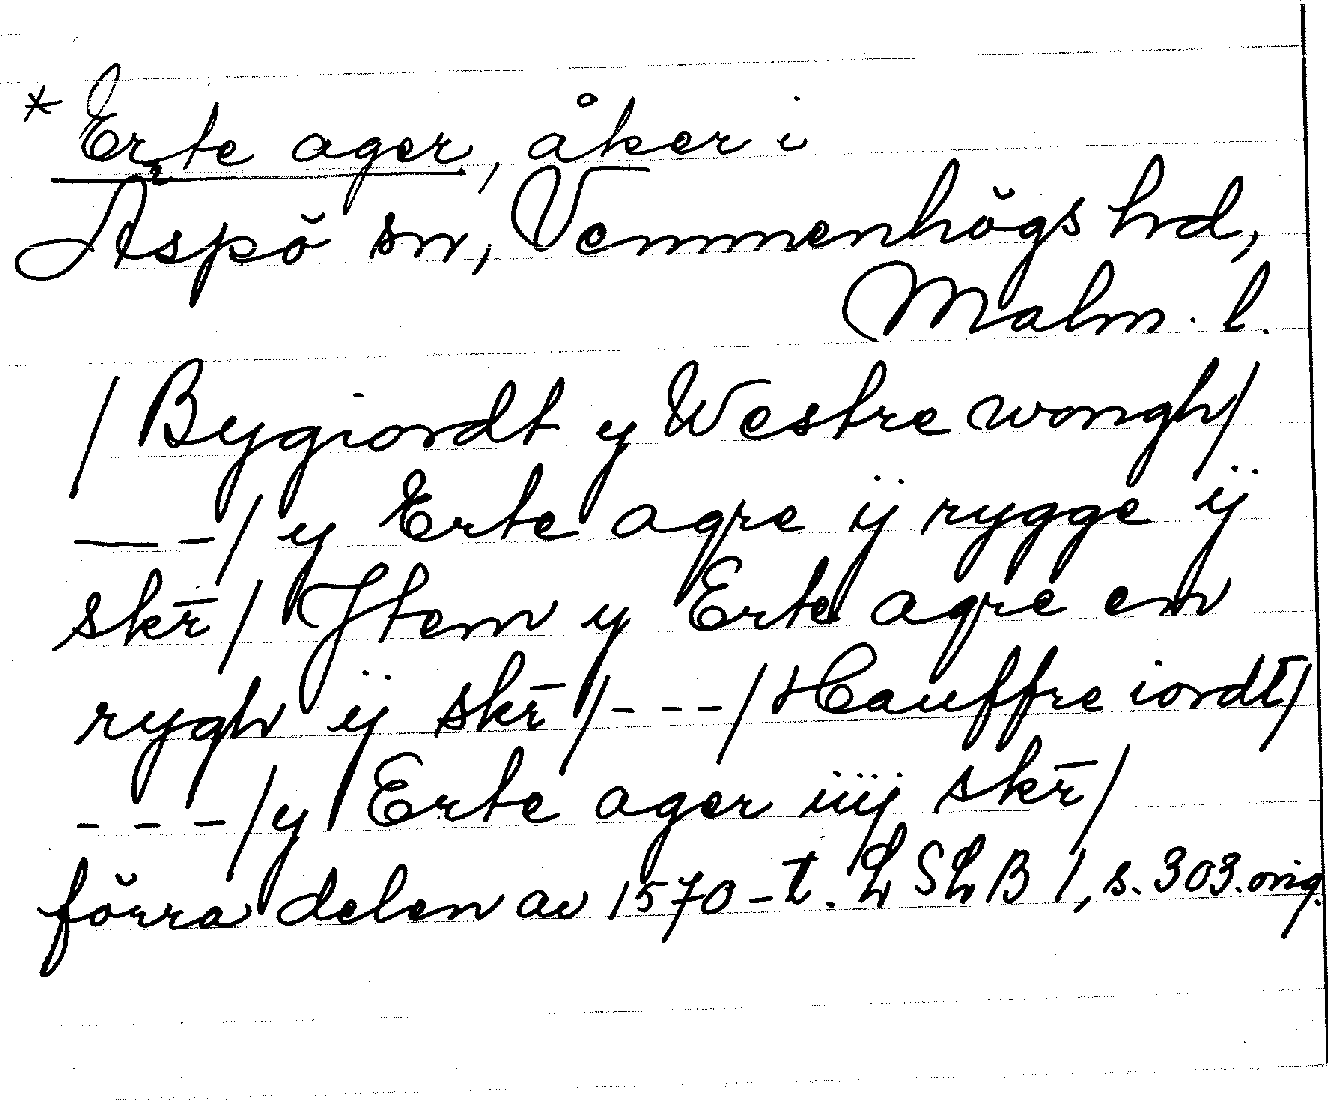 * Erte ager, åker i
Äspö sn, Vemmenhögs hd,
Malm. l.
/ Bygiordt y Westre wongh/
— - / y Erte agre ij rygge ij
skr̄ / Jtem y Erte agre en
rygh ij skr̄ / - - - / Hauffre iordt/
- - - / y Erte ager iiij skr̄ /
förra delen av 1570-t. LSLB 1, s. 303. orig.